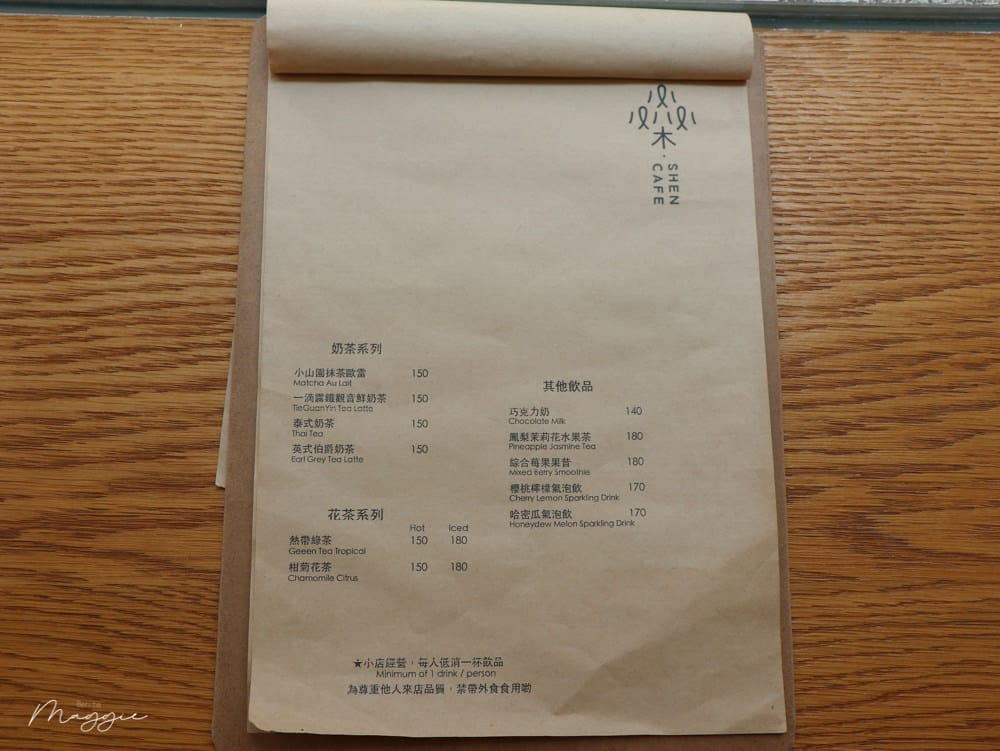 木
SHEN
CAFE
奶茶系列
小山園抹茶歐蕾 150
Matcha Au Lait
一滴露鐵觀音鮮奶茶 150
TieGuanYin Tea Latte
泰式奶茶 150
Thai Tea
英式伯爵奶茶 150
Earl Grey Tea Latte
花茶系列
Hot Iced
熱帶綠茶 150 180
Geeen Tea Tropical
柑菊花茶 150 180
Chamomile Citrus
其他飲品
巧克力奶 140
Chocolate Milk
鳳梨茉莉花水果茶 180
Pineapple Jasmine Tea
綜合莓果果昔 180
Mixed Berry Smoothie
櫻桃檸檬氣泡飲 170
Cherry Lemon Sparkling Drink
哈密瓜氣泡飲 170
Honeydew Melon Sparkling Drink
★小店經營，每人低消一杯飲品
Minimum of 1 drink / person
為尊重他人來店品質，禁帶外食食用喲
Maggie